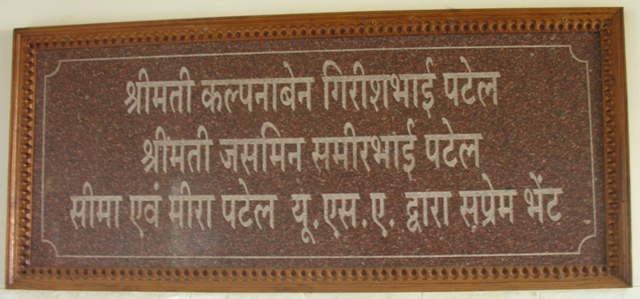 श्रीमती कल्पनाबेन गिरीशभाई पटेल
श्रीमती जसमिन समीरभाई पटेल
सीमा एवं मीरा पटेल यू.एस.ए. द्वारा सप्रेम भेंट